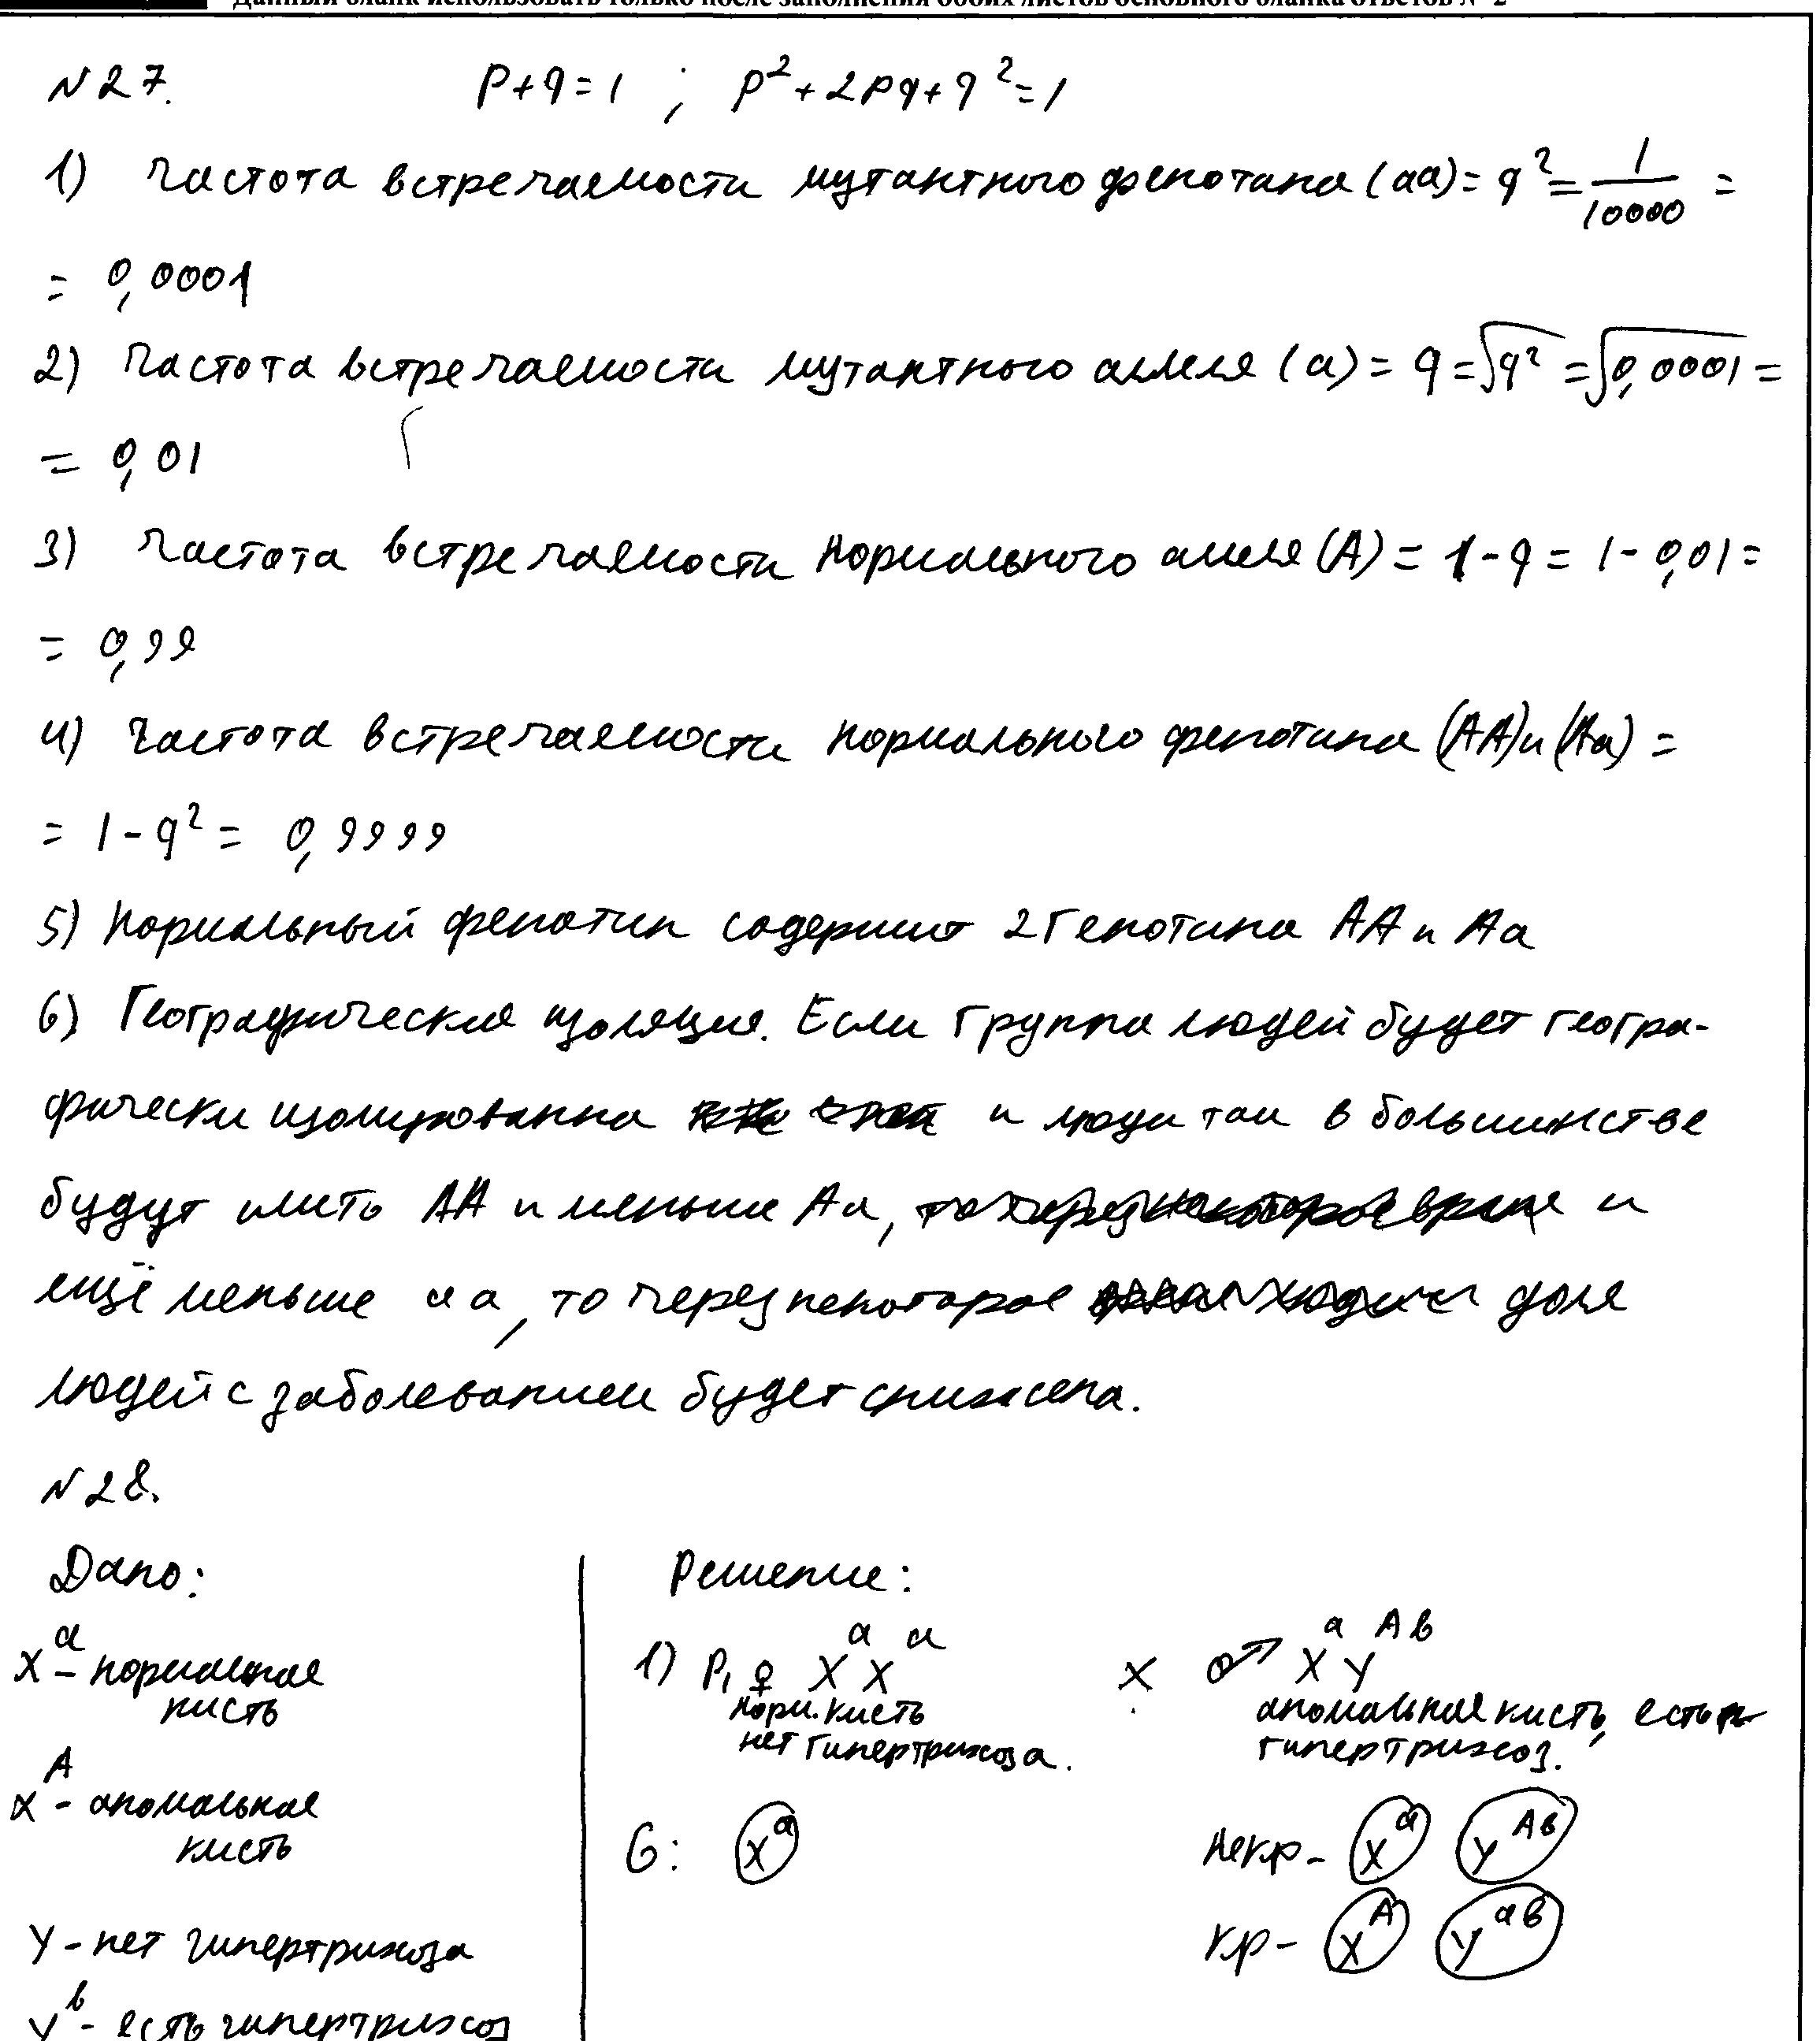 Данный бланк использовать только после заполнения обоих листов основного бланка ответов № 2
N27. p+q=1 ; p²+2pq+q²=1
1) Частота встречаемости мутантного фенотипа (аа)= q² = 1/10000 =
= 0,0001
2) Частота встречаемости мутантного аллеля (а) = q = √q² = √0,0001 =
= 0,01
3) Частота встречаемости нормального аллеля (А) = 1-q = 1-0,01 =
= 0,99
4) Частота встречаемости нормального фенотипа (АА) и (Аа) =
= 1-q² = 0,9999
5) Нормальный фенотип содержит 2 генотипа АА и Аа
6) Географическая изоляция. Если группа людей будет геогра-
фически изолированна и люди там в большинстве
будут иметь АА и меньше Аа, и
ещё меньше аа, то через некоторое доля
людей с заболеванием будет снижена.
N28.
Дано: Решение:
Xᵃ - нормальная
кисть
1) P₁ ♀ XᵃXᵃ × ♂ XᵃYᴬᵇ
норм. кисть аномальная кисть, есть
нет гипертрихоза. гипертрихоз.
Xᴬ - аномальная
кисть
G: Xᵃ некр- Xᵃ Yᴬᵇ
кр- Xᴬ Yᵃᵇ
Y - нет гипертрихоза
Yᵇ - есть гипертрихоз